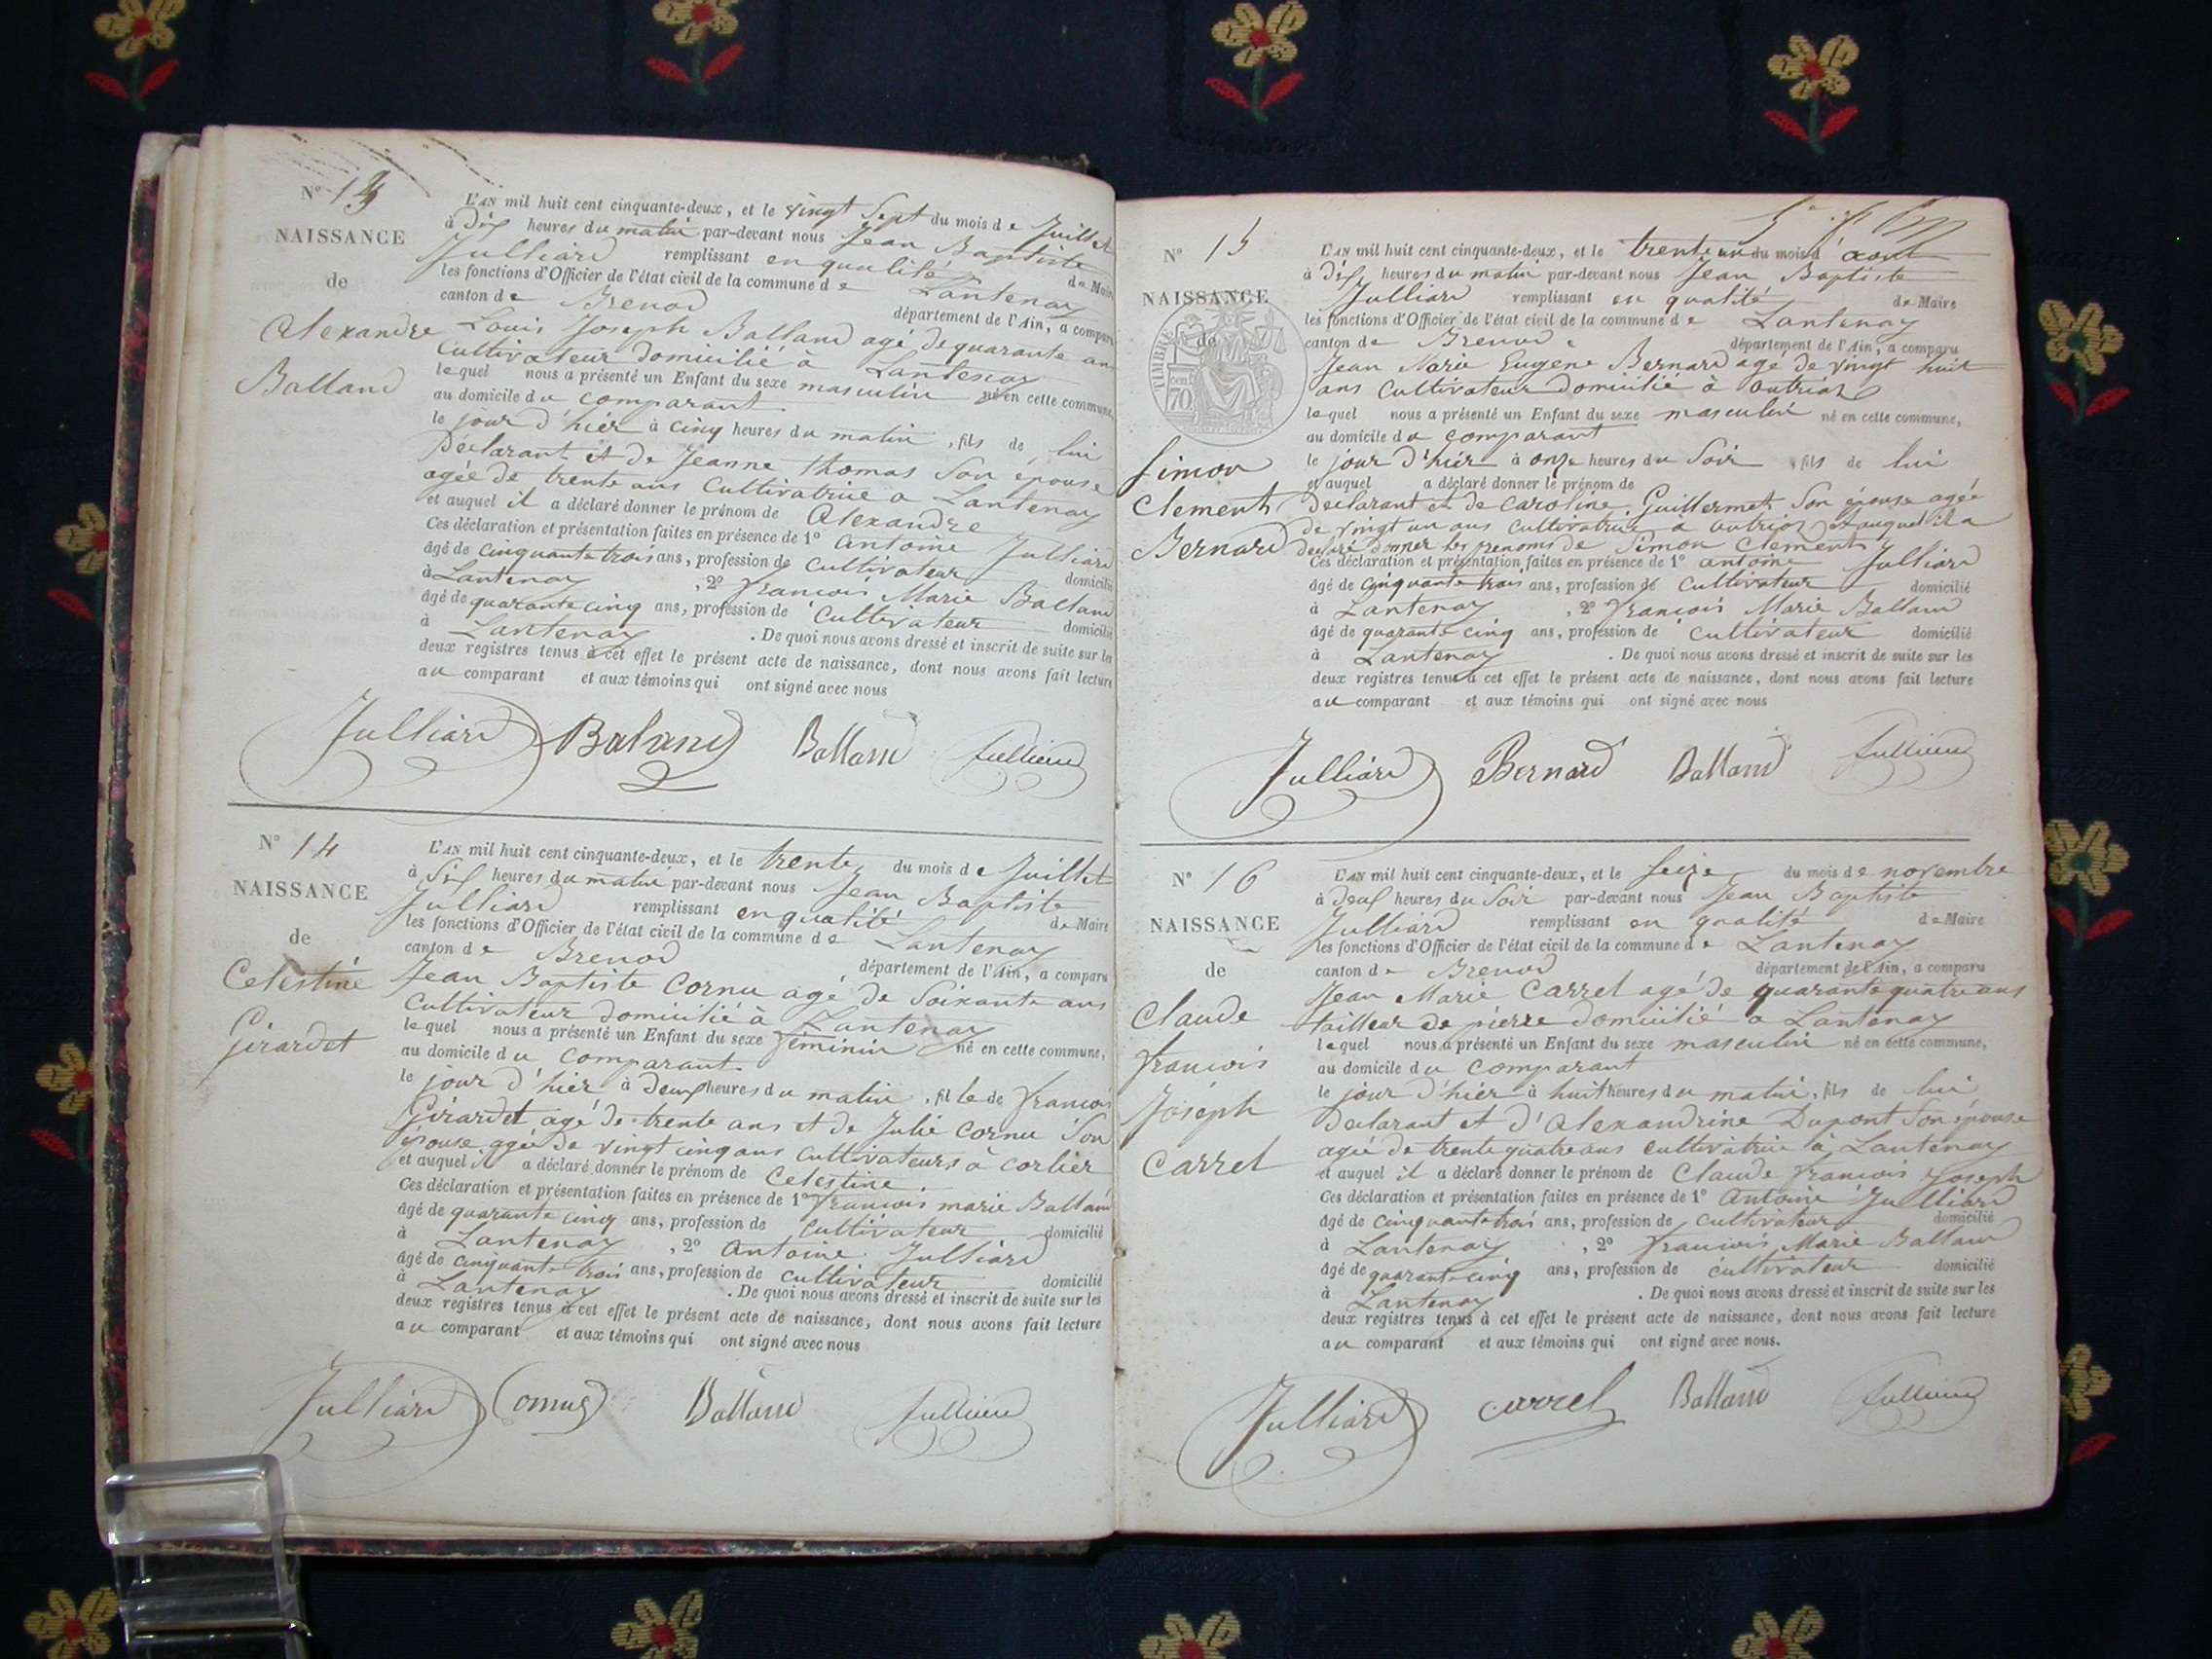 N° 13
NAISSANCE
de
Alexandre
Balland
L'AN mil huit cent cinquante-deux, et le vingt Sept du mois de Juillet
à dix heures du matin par-devant nous Jean Baptiste
Julliard remplissant en qualité de Maire
les fonctions d'Officier de l'état civil de la commune de Lantenay
canton de Brenod département de l'Ain, a comparu
Louis Joseph Balland agé de quarante ans
Cultivateur domicilié à Lantenay
lequel nous a présenté un Enfant du sexe masculin né en cette commune,
au domicile du comparant
le jour d'hier à cinq heures du matin, fils de lui
Déclarant et de Jeanne thomas Son épouse
agée de trente ans Cultivatrice a Lantenay
et auquel il a déclaré donner le prénom de Alexandre
Ces déclaration et présentation faites en présence de 1° antoine Julliard
âgé de cinquante trois ans, profession de Cultivateur domicilié
à Lantenay, 2° francois Marie Balland
âgé de quarante cinq ans, profession de Cultivateur domicilié
à Lantenay. De quoi nous avons dressé et inscrit de suite sur les
deux registres tenus à cet effet le présent acte de naissance, dont nous avons fait lecture
au comparant et aux témoins qui ont signé avec nous
Julliard Baland Balland Jullierd
N° 14
NAISSANCE
de
Celestine
Girardet
L'AN mil huit cent cinquante-deux, et le trente du mois de Juillet
à Six heures du matin par-devant nous Jean Baptiste
Julliard remplissant en qualité de Maire
les fonctions d'Officier de l'état civil de la commune de Lantenay
canton de Brenod département de l'Ain, a comparu
Jean Baptiste Cornu agé de Soixante ans
Cultivateur domicilié à Lantenay
lequel nous a présenté un Enfant du sexe féminin né en cette commune,
au domicile du comparant
le jour d'hier à deux heures du matin, fille de francois
Girardet agé de trente ans et de Julie Cornu Son
épouse agée de vingt cinq ans Cultivateurs à Corlier
et auquel il a déclaré donner le prénom de Celestine
Ces déclaration et présentation faites en présence de 1° francois marie Balland
âgé de quarante cinq ans, profession de Cultivateur domicilié
à Lantenay, 2° antoine Julliard
âgé de cinquante trois ans, profession de Cultivateur domicilié
à Lantenay. De quoi nous avons dressé et inscrit de suite sur les
deux registres tenus à cet effet le présent acte de naissance, dont nous avons fait lecture
au comparant et aux témoins qui ont signé avec nous
Julliard Cornu Balland Jullierd
N° 15
NAISSANCE
de
TIMBRE
70
Simon
Clement
Bernard
L'AN mil huit cent cinquante-deux, et le trente un du mois d'aout
à dix heures du matin par-devant nous Jean Baptiste
Julliard remplissant en qualité de Maire
les fonctions d'Officier de l'état civil de la commune de Lantenay
canton de Brenod département de l'Ain, a comparu
Jean Marie Eugene Bernard agé de vingt huit
ans Cultivateur Domicilié à Outriaz
lequel nous a présenté un Enfant du sexe masculin né en cette commune,
au domicile du comparant
le jour d'hier à onze heures du Soir, fils de lui
et auquel a déclaré donner le prénom de
Declarant et de Caroline Guillermet Son épouse agée
de vingt un ans Cultivatrice a outriaz et auquel il a
declaré donner les prenoms de Simon Clement
Ces déclaration et présentation faites en présence de 1° antoine Julliard
âgé de cinquante trois ans, profession de Cultivateur domicilié
à Lantenay, 2° francois Marie Balland
âgé de quarante cinq ans, profession de Cultivateur domicilié
à Lantenay. De quoi nous avons dressé et inscrit de suite sur les
deux registres tenus à cet effet le présent acte de naissance, dont nous avons fait lecture
au comparant et aux témoins qui ont signé avec nous
Julliard Bernard Balland Jullierd
N° 16
NAISSANCE
de
Claude
francois
Joseph
Carrel
L'AN mil huit cent cinquante-deux, et le Seize du mois de novembre
à deux heures du Soir par-devant nous Jean Baptiste
Julliard remplissant en qualité de Maire
les fonctions d'Officier de l'état civil de la commune de Lantenay
canton de Brenod département de l'Ain, a comparu
Jean Marie Carrel agé de quarante quatre ans
tailleur de pierre domicilié a Lantenay
lequel nous a présenté un Enfant du sexe masculin né en cette commune,
au domicile du comparant
le jour d'hier à huit heures du matin, fils de lui
Declarant et d'Alexandrine Dupont Son épouse
agée de trente quatre ans cultivatrice à Lantenay
et auquel il a déclaré donner le prénom de Claude francois Joseph
Ces déclaration et présentation faites en présence de 1° Antoine Julliard
âgé de cinquante trois ans, profession de cultivateur domicilié
à Lantenay, 2° francois Marie Balland
âgé de quarante cinq ans, profession de cultivateur domicilié
à Lantenay. De quoi nous avons dressé et inscrit de suite sur les
deux registres tenus à cet effet le présent acte de naissance, dont nous avons fait lecture
au comparant et aux témoins qui ont signé avec nous.
Julliard carrel Balland Jullierd